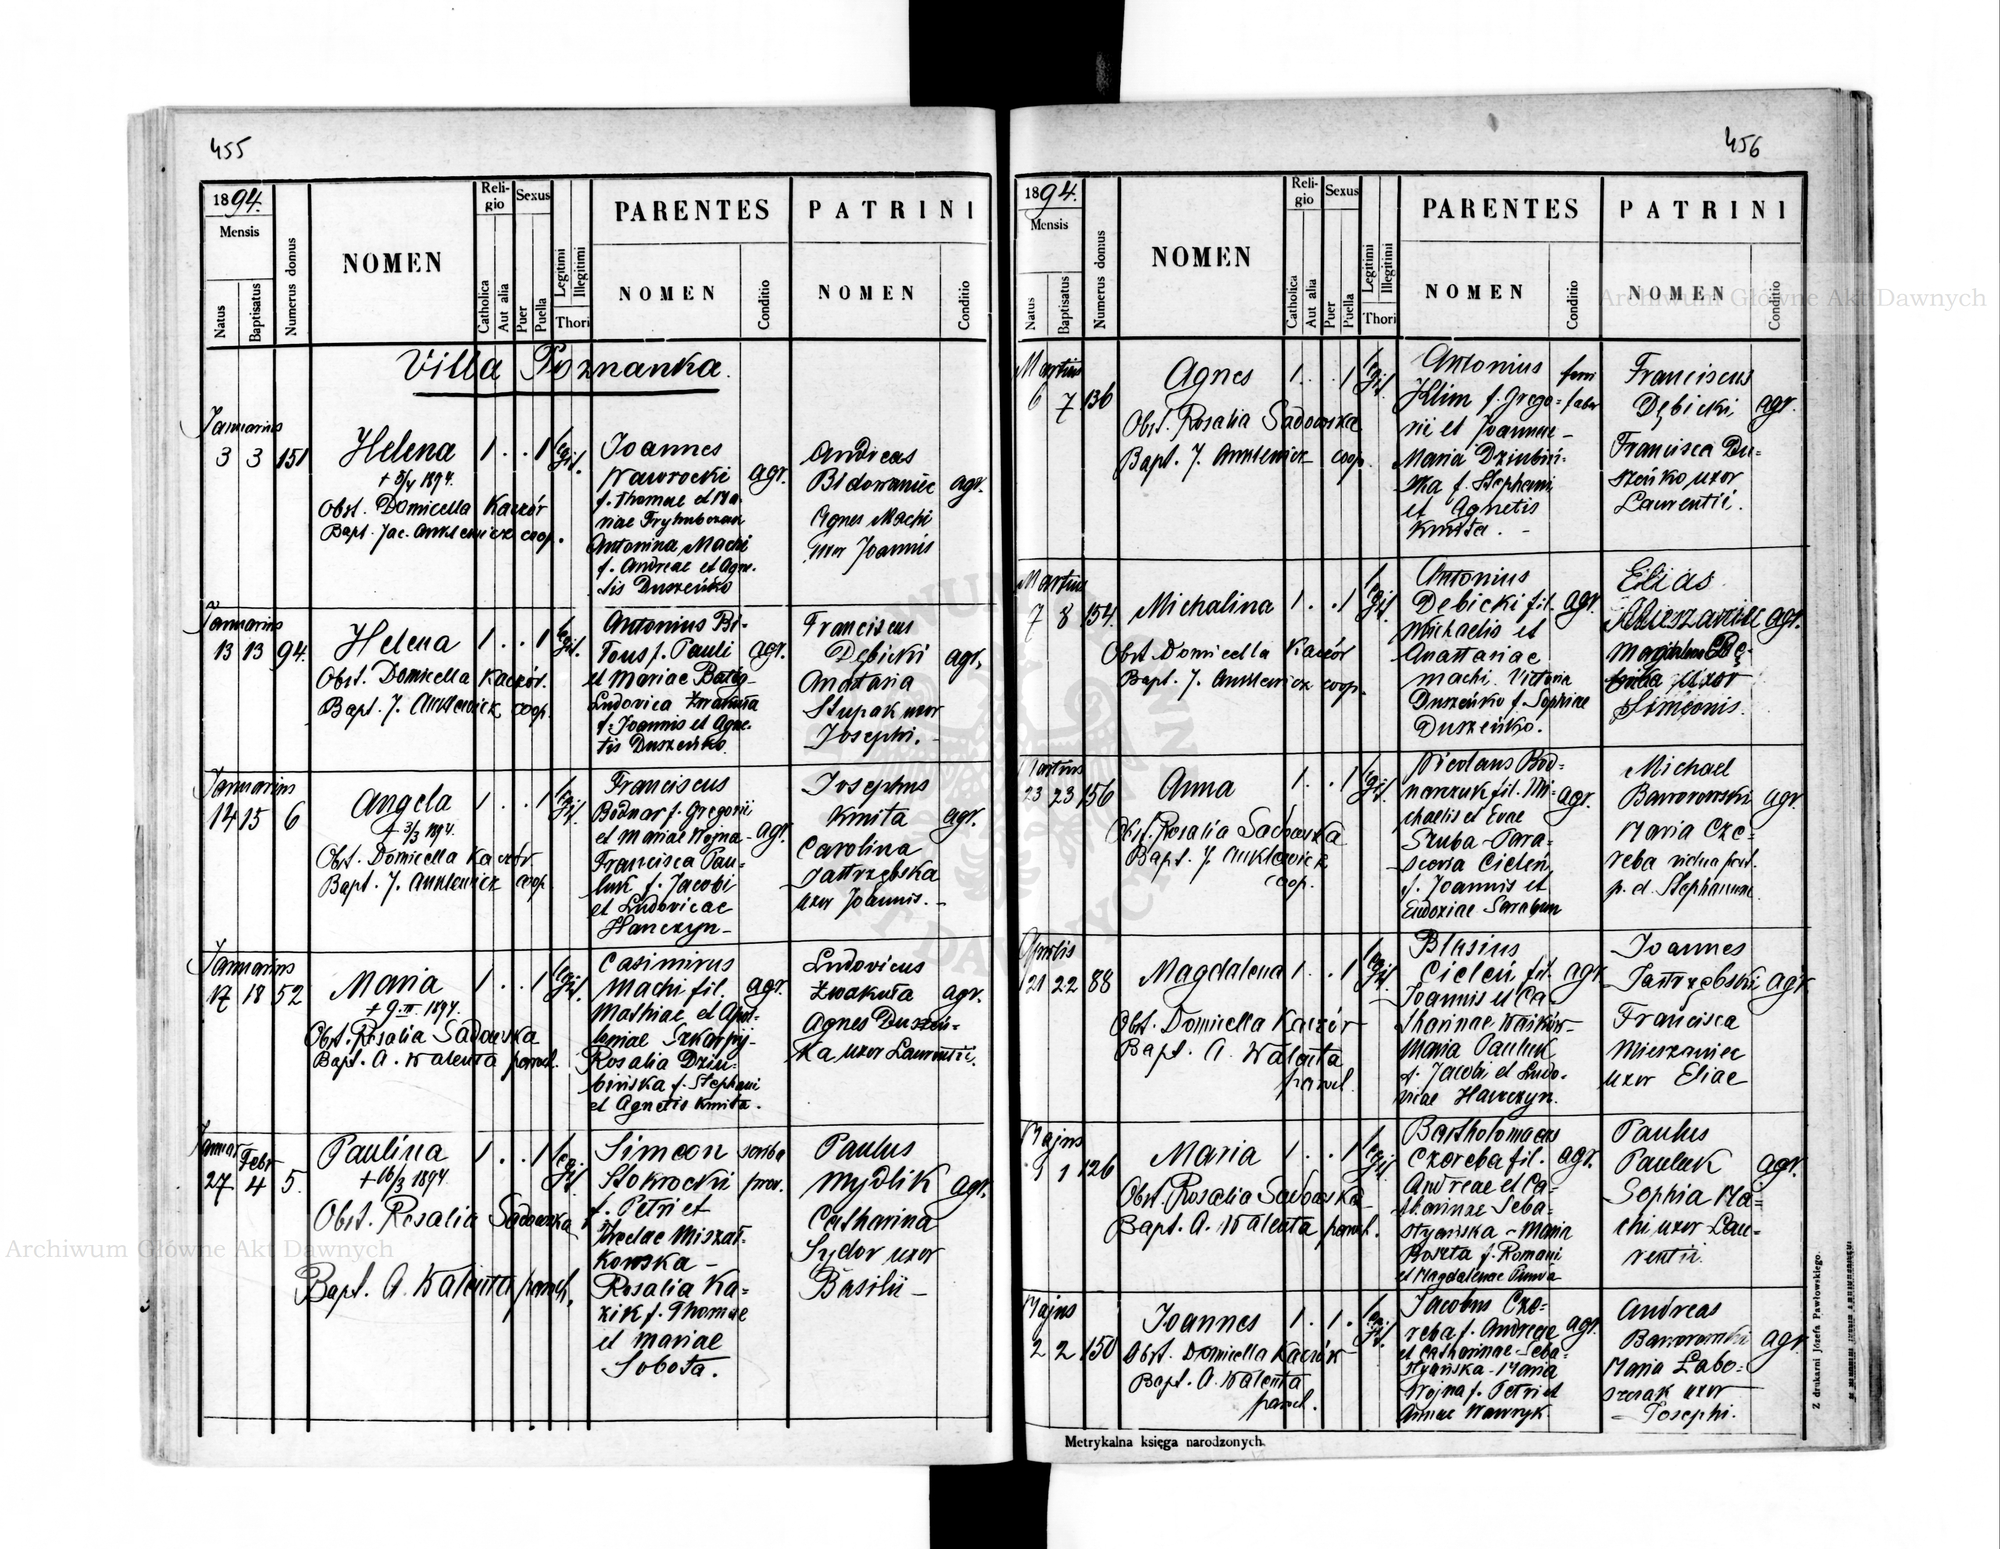 455
1894.
Mensis
Natus
Baptisatus
Numerus domus
NOMEN
Reli-
gio
Catholica
Aut alia
Sexus
Puer
Puella
Legitimi
Illegitimi
Thori
PARENTES
NOMEN
Conditio
PATRINI
NOMEN
Conditio
Villa Poznanka.
Januarius
3 3 151
Helena 1 . . 1 legit.
+ 5/4 1894.
Obst. Domicella Kaczór
Bapt. Jac. Anklewicz coop.
Joannes
Nawrocki agr.
f. Thomae et Ma-
riae
Antonina Machi
f. Andreae et Agne-
tis Duszeńko
Andreas
agr.
Agnes Machi
uxor Joannis
Januarius
13 13 94.
Helena 1 . . 1 legit.
Obst. Domicella Kaczór.
Bapt. J. Anklewicz coop.
Antonius Bi-
tous f. Pauli agr.
et Mariae
Ludovica Zwakuła
f. Joannis et Agne-
tis Duszeńko.
Franciscus
Dębicki agr.
Anastasia
Stupak uxor
Josephi. -
Januarius
14 15 6
Angela 1 . . 1 legit.
+ 3/3 1894.
Obst. Domicella Kaczór.
Bapt. J. Anklewicz coop.
Franciscus
Bodnar f. Gregorii
et Mariae Wojna- agr.
Francisca Pau-
luk f. Jacobi
et Ludovicae
Hanczyn-
Josephus
Kmita agr.
Carolina
Jastrzębska
uxor Joannis. -
Januarius
17 18 52
Maria 1 . . 1 legit.
+ 9. III. 1894.
Obst. Rosalia Sadowska
Bapt. A. Walenta paroch.
Casimirus
Machi fil. agr.
Mathiae et Apol-
loniae
Rosalia Dziu-
bińska f. Stephani
et Agnetis Kmita.
Ludovicus
Zwakuła agr.
Agnes Duszeń-
ka uxor Laurentii.
Januar. Febr.
27 4 5.
Paulina 1 . . 1 legit.
+ 16/3 1894.
Obst. Rosalia Sadowska
Bapt. A. Walenta paroch.
Simeon
Stokrocki
f. Petri et
Theclae Miszal-
kowska -
Rosalia Ka-
zik f. Thomae
et Mariae
Sobota.
Paulus
Mydlik agr.
Catharina
Sydor uxor
Basilii -
456
1894.
Mensis
Natus
Baptisatus
Numerus domus
NOMEN
Reli-
gio
Catholica
Aut alia
Sexus
Puer
Puella
Legitimi
Illegitimi
Thori
PARENTES
NOMEN
Conditio
PATRINI
NOMEN
Conditio
Martius
6 7 136
Agnes 1 . . 1 legit.
Obst. Rosalia Sadowska
Bapt. J. Anklewicz coop.
Antonius ferri
Klim f. Grego- faber
rii et Joannae -
Maria Dziubiń-
ska f. Stephani
et Agnetis
Kmita. -
Franciscus
Dębicki agr.
Francisca Du-
szeńko uxor
Laurentii.
Martius
7 8 154.
Michalina 1 . . 1 legit.
Obst. Domicella Kaczór
Bapt. J. Anklewicz coop.
Antonius
Dębicki fil. agr.
Michaelis et
Anastasiae
Machi. Victoria
Duszeńko f. Sophiae
Duszeńko.
Elias
Mieszaniec agr.
uxor
Simeonis.
Martius
23 23 156
Anna 1 . . 1 legit.
Obst. Rosalia Sadowska
Bapt. J. Anklewicz
coop.
Nicolaus Bod-
narczuk fil. Mi- agr.
chaelis et Evae
Szuba - Para-
scevia Cicleń
f. Joannis et
Eudoxiae
Michael
Baworowski agr.
Maria Cze-
reba vidua post.
p. d. Stephanum
Aprilis
21 22 88
Magdalena 1 . . 1 legit.
Obst. Domicella Kaczór
Bapt. A. Walenta
paroch.
Blasius
Cicleń fil. agr.
Joannis et Ca-
tharinae
Maria Pauluk
f. Jacobi et Ludo-
vicae Hanczyn.
Joannes
Jastrzębski agr.
Francisca
Mieszaniec
uxor Eliae
Majus
1 1 126
Maria 1 . . 1 legit.
Obst. Rosalia Sadowska
Bapt. A. Walenta paroch.
Bartholomaeus
Czereba fil. agr.
Andreae et Ca-
tharinae Seba-
styańska - Maria
f. Romani
et Magdalenae
Paulus
Pauluk agr.
Sophia Ma-
chi uxor Lau-
rentii.
Majus
2 2 150
Joannes 1 . 1 . legit.
Obst. Domicella Kaczór
Bapt. A. Walenta
paroch.
Jacobus Cze-
reba f. Andreae agr.
et Catharinae Seba-
styańska - Maria
Wojna f. Petri et
Annae Wawryk.
Andreas
Baworowski agr.
Maria Łabo-
uxor
Josephi.
Metrykalna księga narodzonych.
Z drukarni Józefa Pawłowskiego.
Archiwum Główne Akt Dawnych
Archiwum Główne Akt Dawnych